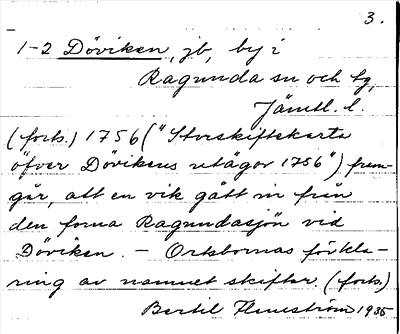 3.
1-2 Döviken, jb, by i
Ragunda sn och tg,
Jämtl. l.
(forts.) 1756 ("Storskifteskarta
öfver Dövikens utägor 1756") fram-
går, att en vik gått in från
den forna Ragundasjön vid
Döviken. — Ortsbornas förkla-
ring av namnet skiftar. (forts.)
Bertil Flemström 1935